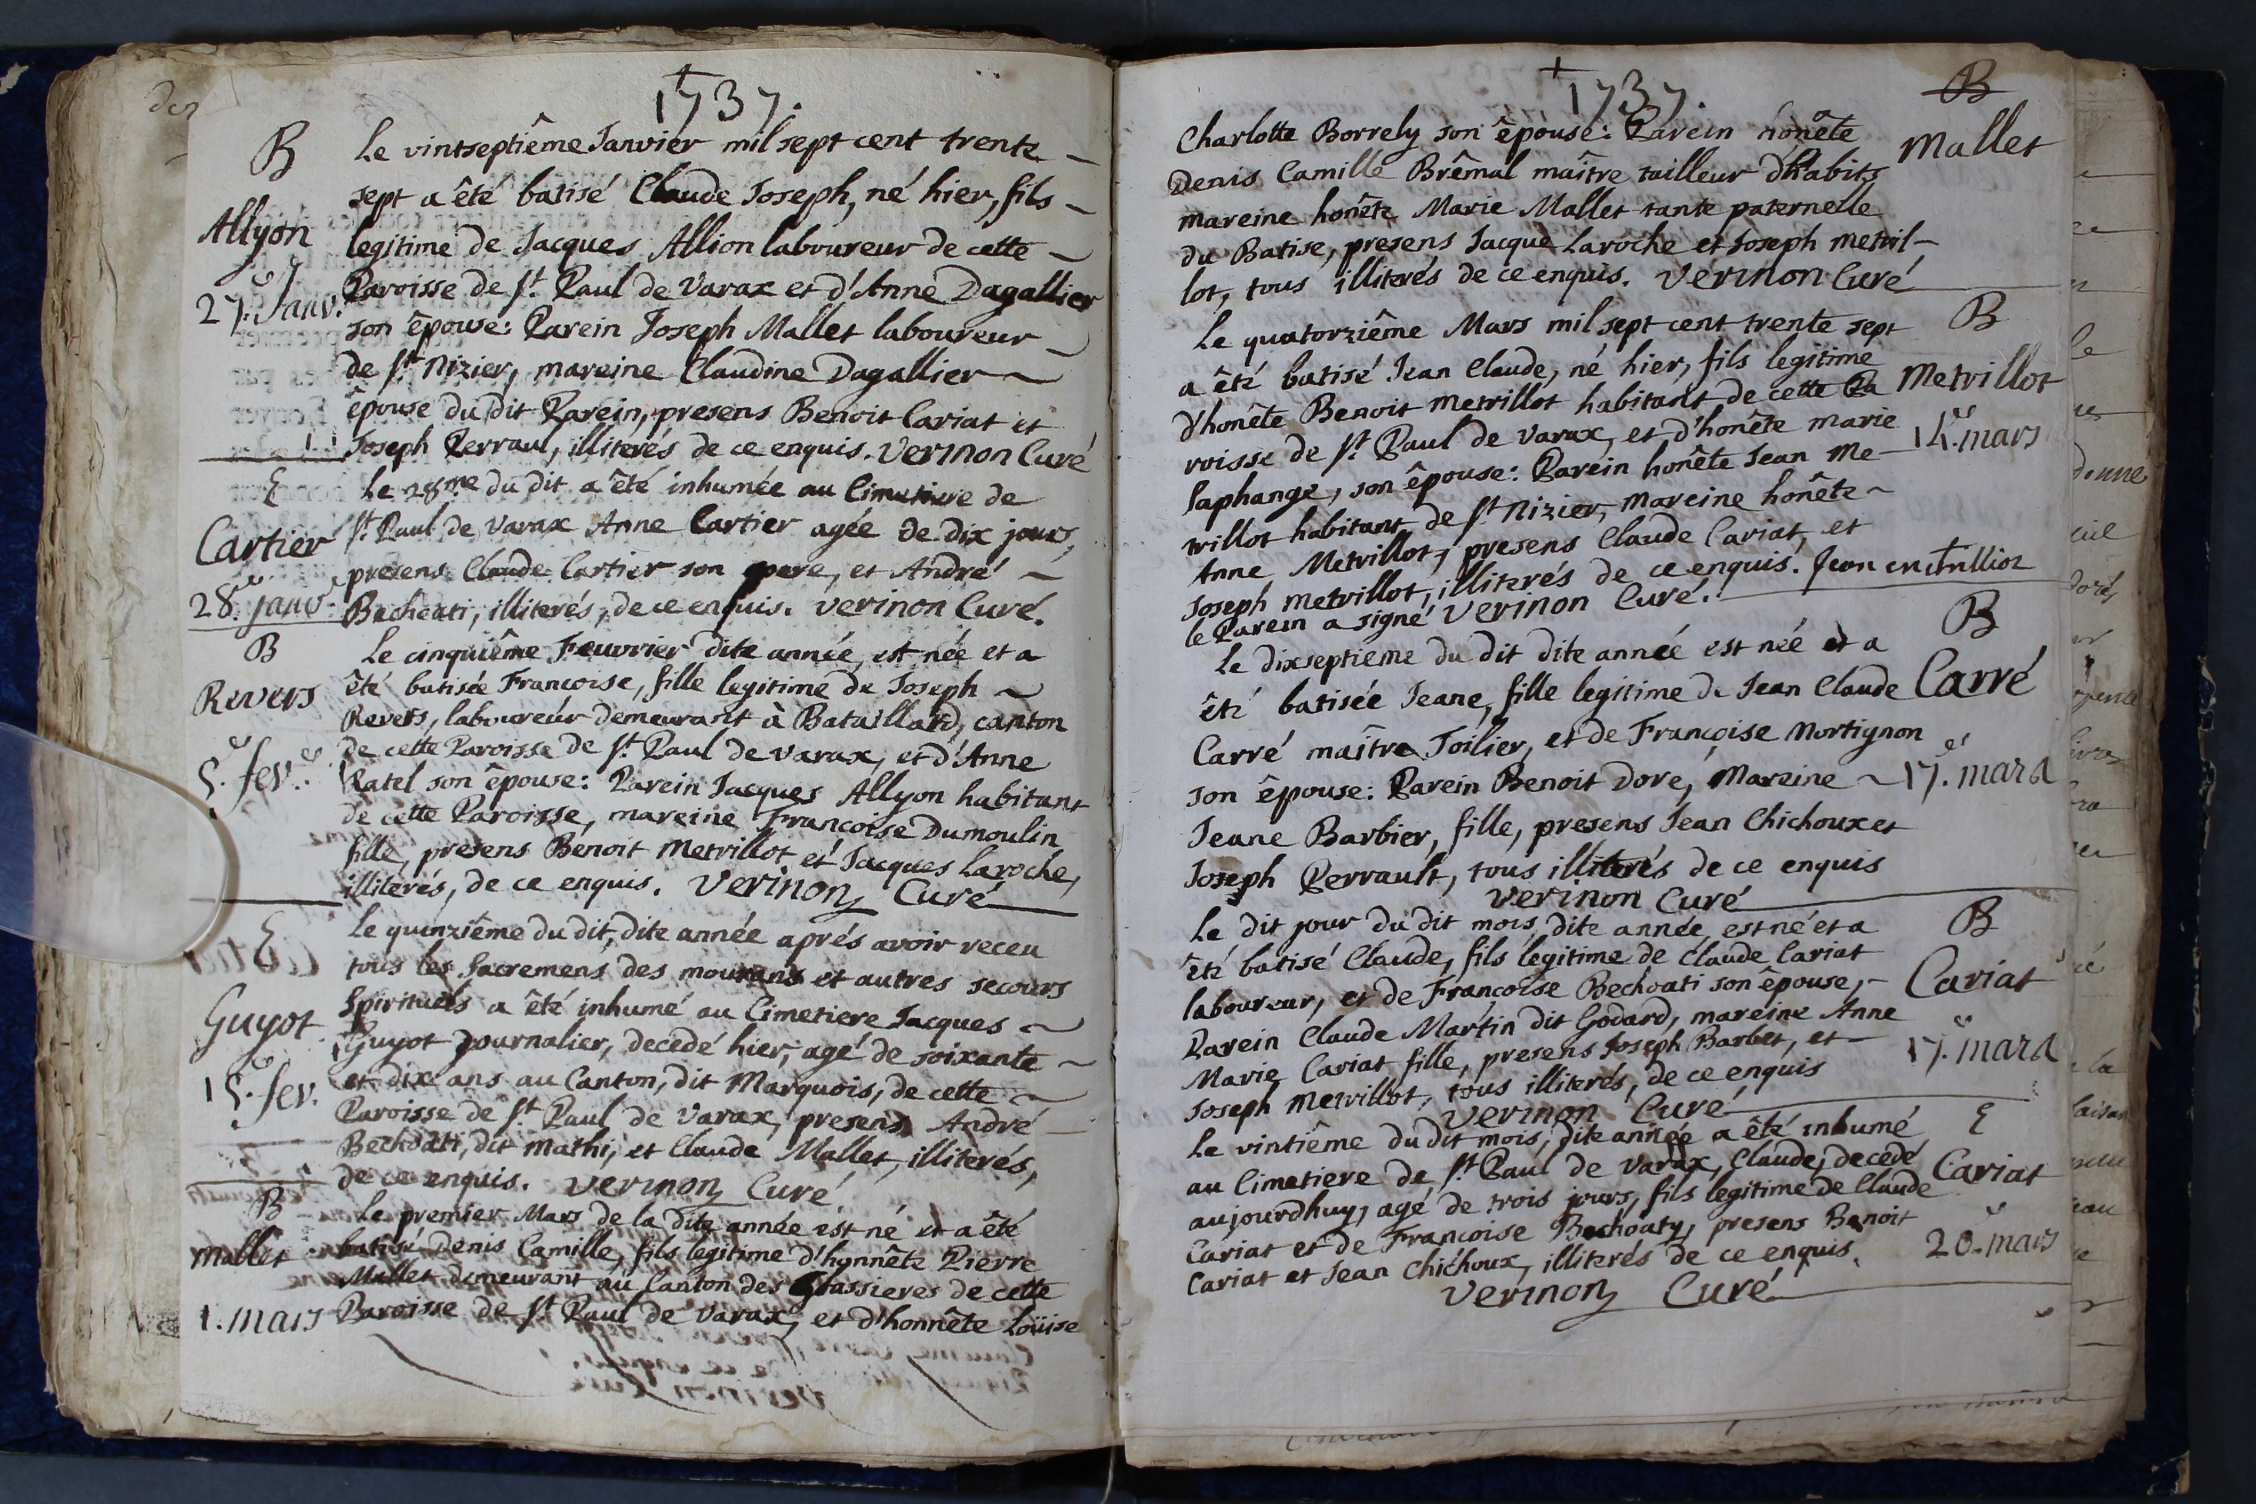 1737.
B
Le vintseptiême Janvier mil sept cent trente
sept a êté batisé Claude Joseph, né hier, fils
Allyon
legitime de Jacques Allion laboureur de cette
27.e Janv.
Paroisse de St. Paul de Varax et d'Anne Dagallier
son êpouse: Parein Joseph Mallet laboureur
de St Nizier, mareine Claudine Dagallier
êpouse du dit Parein, presens Benoit Cariat et
Joseph Perraul, illiterés de ce enquis. Verinon Curé
E
Le 28.me du dit a êté inhumée au Cimetiere de
Cartier
St. Paul de Varax Anne Cartier agée de dix jours,
presens Claude Cartier son pere, et André
28.e janv.
Bechoati, illiterés, de ce enquis. Verinon Curé.
B
Le cinquiême Feuvrier dite année est née et a
Revers
êté batisée Francoise, fille legitime de Joseph
Revers, laboureur demeurant à Bataillard, canton
de cette Paroisse de St. Paul de Varax, et d'Anne
5.e fev.
Ratel son êpouse: Parein Jacques Allyon habitant
de cette Paroisse, mareine Francoise Dumoulin
fille, presens Benoit Metrillot et Jacques Laroche,
illiterés, de ce enquis. Verinon Curé
E
Le quinziême du dit, dite année aprés avoir receu
tous les Sacremens des mourans et autres secours
Guyot
Spirituels a êté inhumé au Cimetiere Jacques
Guyot journalier, decedé hier, agé de soixante
15.e fev.
et dix ans au Canton, dit Marquois, de cette
Paroisse de St. Paul de Varax, presens André
Bechoati, dit Mathi, et Claude Mallet, illiterés,
de ce enquis. Verinon Curé
B
Le premier Mars de la dite année est né et a êté
Mallet
batisé Denis Camille, fils legitime d'honnête Pierre
Mallet demeurant au Canton des Glassieres de cette
1. mars
Paroisse de St. Paul de Varax, et d'honnête Loüise
1737.
B
Charlotte Borrely son êpouse: Parein honête
Mallet
Denis Camille Brêmal maître tailleur d'habits
mareine honête Marie Mallet tante paternelle
du Batise, presens Jacque Laroche et Joseph metril-
lot, tous illiterés de ce enquis. Verinon Curé
B
Le quatorziême Mars mil sept cent trente sept
a êté batisé Jean Claude, né hier, fils legitime
Metrillot
d'honête Benoit metrillot habitant de cette Pa
14.e mars
roisse de St. Paul de Varax, et d'honête marie
Laphange, son êpouse: Parein honête Jean Me-
trillot habitant de St Nizier, mareine honête
Anne Metrillot, presens Claude Cariat, et
Joseph metrillot, illiterés de ce enquis. Jean
le Parein a signé Verinon Curé.
B
Le dixseptieme du dit dite année est née et a
Carré
êté batisée Jeane, fille legitime de Jean Claude
Carré maître Toilier, et de Françoise Mortignon
17.e mars
son êpouse: Parein Benoit Dore, Mareine
Jeane Barbier, fille, presens Jean Chichoux et
Joseph Perrault, tous illiterés de ce enquis
Verinon Curé
B
Le dit jour du dit mois, dite année, est né et a
êté batisé Claude, fils legitime de Claude Cariat
Cariat
laboureur, et de Francoise Bechoati son êpouse,
Parein Claude Martin dit Godard, mareine Anne
17.e mars
Marie Cariat fille, presens Joseph Barbet, et
Joseph metrillot, tous illiterés, de ce enquis
Verinon Curé
E
Le vintiême du dit mois, dite année a êté inhumé
Cariat
au Cimetiere de St. Paul de Varax, Claude, decedé
aujourdhuy, agé de trois jours, fils legitime de Claude
20.e mars
Cariat et de Francoise Bechoaty, presens Benoit
Cariat et Jean Chichoux, illiterés de ce enquis.
Verinon Curé